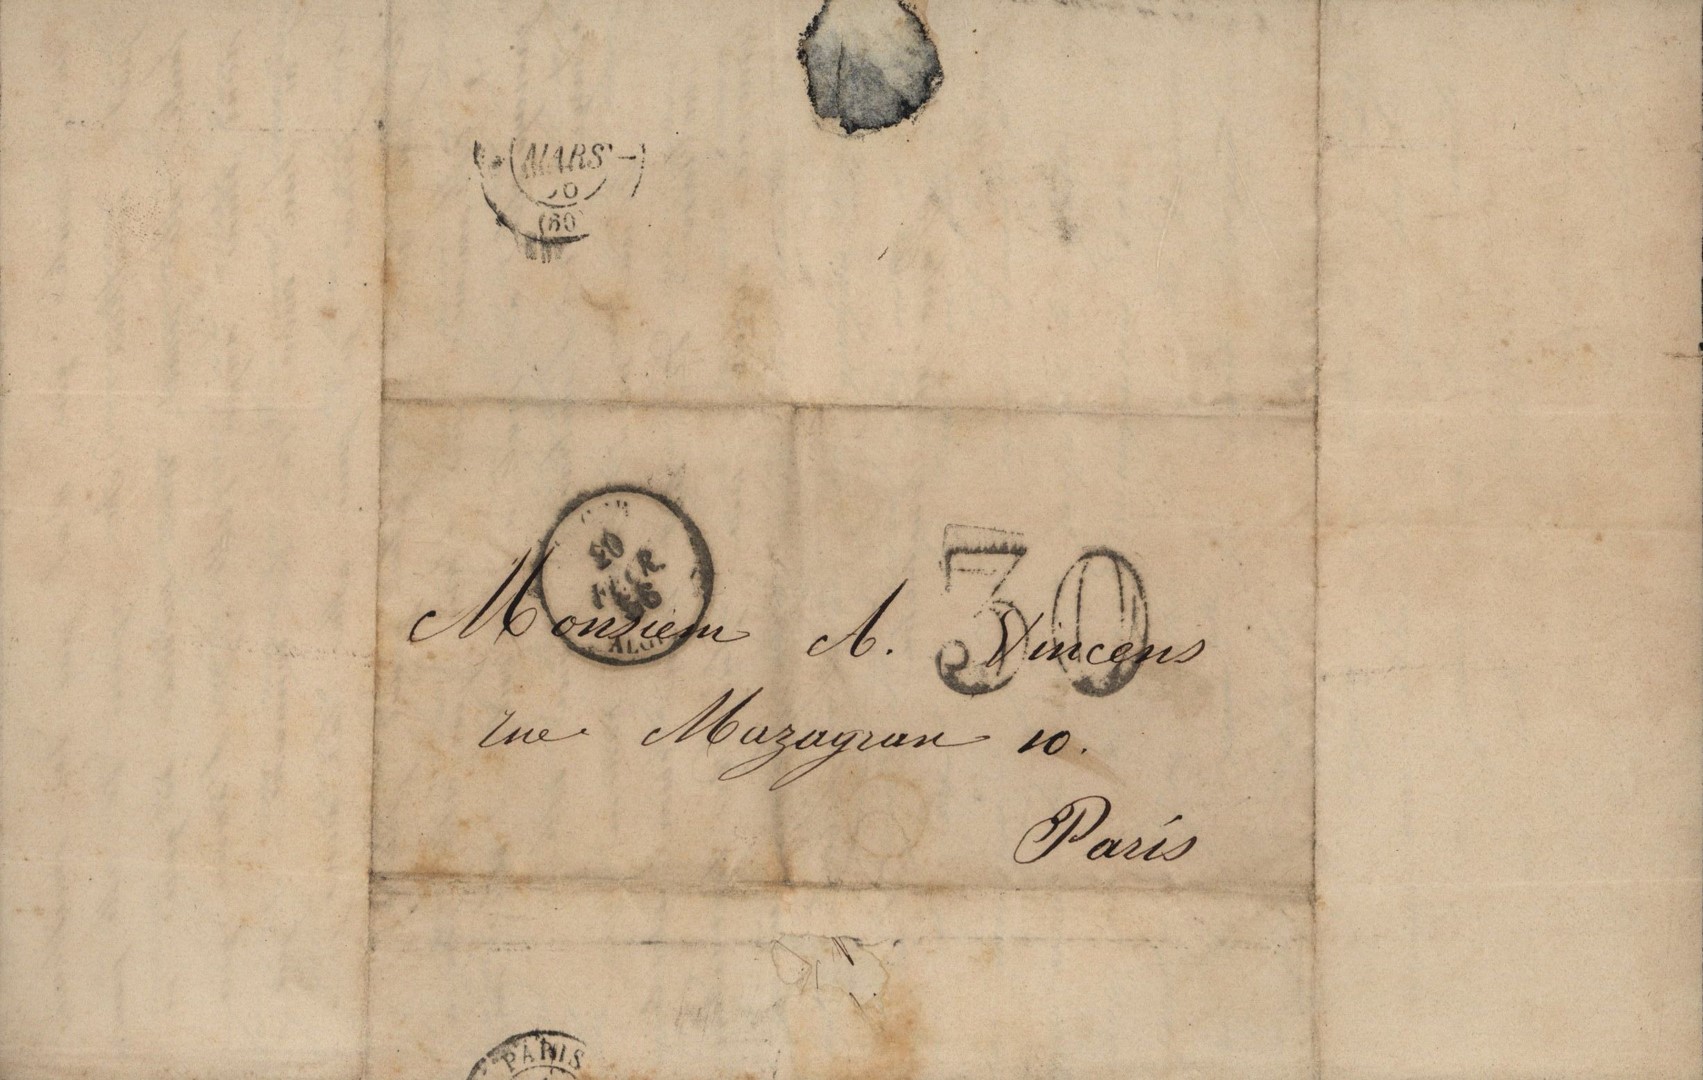 MARS
(60)
20
FEVR
56
ALG
30
Monsieur A. Vincens
rue Mazagran 10.
Paris
PARIS